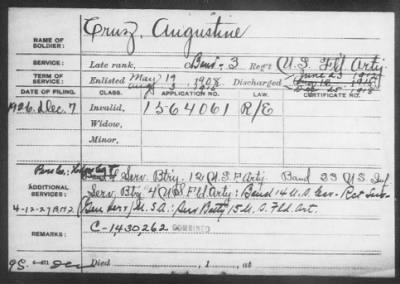 NAME OF SOLDIER: Cruz, Augustine
SERVICE: Late rank, Regt U.S. Fld Arty
TERM OF SERVICE: Enlisted May 19 1908 Discharged
DATE OF FILING. CLASS. APPLICATION NO. LAW. CERTIFICATE NO.
1926 Dec. 7 Invalid, 1564061 R/E
Widow,
Minor,
Serv. Btry. 12 U.S.F. Arty. Band 33 U.S. Inf
ADDITIONAL SERVICES: Serv. Btry 4 U.S. Fld Arty: Band 14 U.S. Cav.
4-12-27 U.S.A.: Serv Batty 15 U.S. Fld. Art.
REMARKS: C-1,430,262 COMBINED
Died , 1 , at